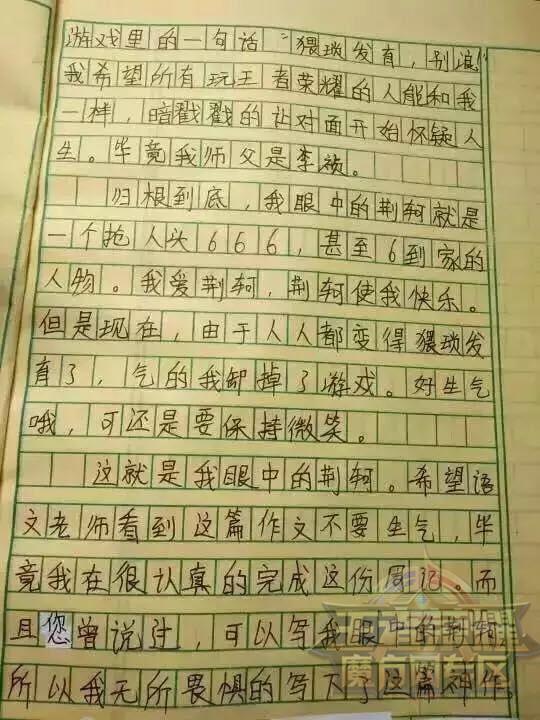 游戏里的一句话“猥琐发育,别浪!”
我希望所有玩王者荣耀的人能和我
一样,暗戳戳的让对面开始怀疑人
生。毕竟我师父是李祯。
归根到底,我眼中的荆轲就是
一个抢人头666,甚至6到家的
人物。我爱荆轲,荆轲使我快乐。
但是现在,由于人人都变得猥琐发
育了,气的我卸掉了游戏。好生气
哦,可还是要保持微笑。
这就是我眼中的荆轲。希望语
文老师看到这篇作文不要生气,毕
竟我在很认真的完成这份周记。而
且您曾说过,可以写我眼中的荆轲,
所以我无所畏惧的写下了这篇神作。